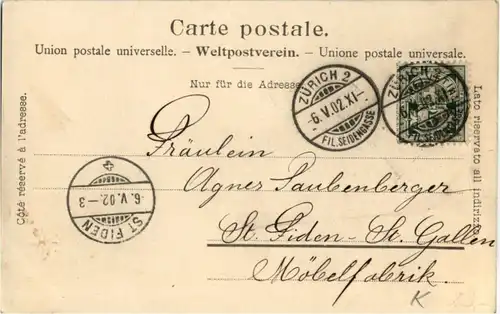 Carte postale.
Union postale universelle. – Weltpostverein. – Unione postale universale.
Nur für die Adresse
ZÜRICH 2
-6.V.02.XI-
FIL.SEIDENGASSE
Côté réservé à l'adresse.
Lato riservato all indirizzo
ST. FIDEN
6.V.02.–3
Fräulein
Agnes Taubenberger
St. Fiden - St. Gallen
Möbelfabrik.
K